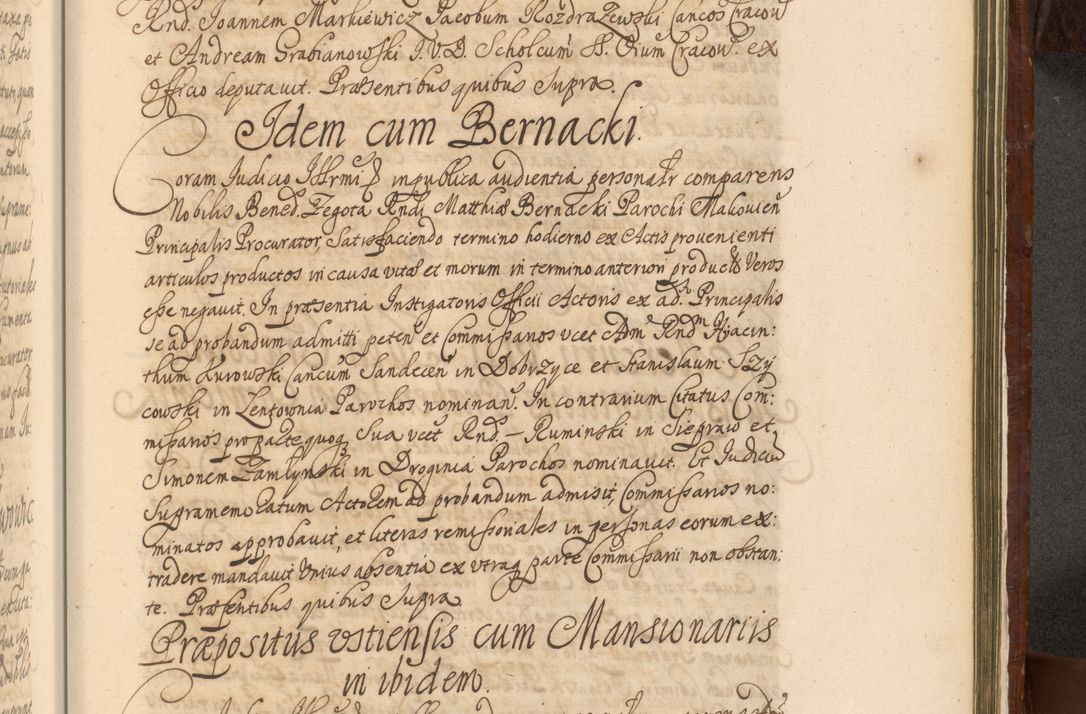 Rnd. Joannem Markiewicz Jacobum Rozdrazewski Cancos Cracou
et Andream Grabianowski J.V.D. Scholcum SS. Orium Cracou. ex
Officio deputavit. Præsentibus quibus Supra.
Idem cum Bernacki.
Coram Judicio Illrmi D in publica audientia personalr comparens
Nobilis Bened. Zegota Rndi Matthiæ Bernacki Parochi Makovien
Principalis Procurator, Satisfaciendo termino hodierno ex Actis provenienti
articulos productos in causa vitæ et morum in termino anteriori productos Veros
esse negavit. In præsentia Instigatoris Officii Actoris ex adv. Principalis
se ad probandum admitti peten et Commissarios vcet Adm. Rndm Hyacin:
thum Kurowski Cancum Sandecen in Dobrzyce et Stanislaum Szy
cowski in Lentownia Parochos nominan. In contrarium Citatus Com:
missarios pro parte quoq Sua vcet Rnd. – Ruminski in Siepraw et
Simonem Zamlynski in Droginia Parochos nominavit. Et Judiciu
Supramemoratum Actorem ad probandum admisit, Commissarios no:
minatos approbavit, et literas remissoriales in personas eorum ex:
tradere mandavit Unius absentia ex utraq parte Commissarii non obstan:
te. Præsentibus quibus Supra
Præpositus Ustiensis cum Mansionariis
in ibidem.